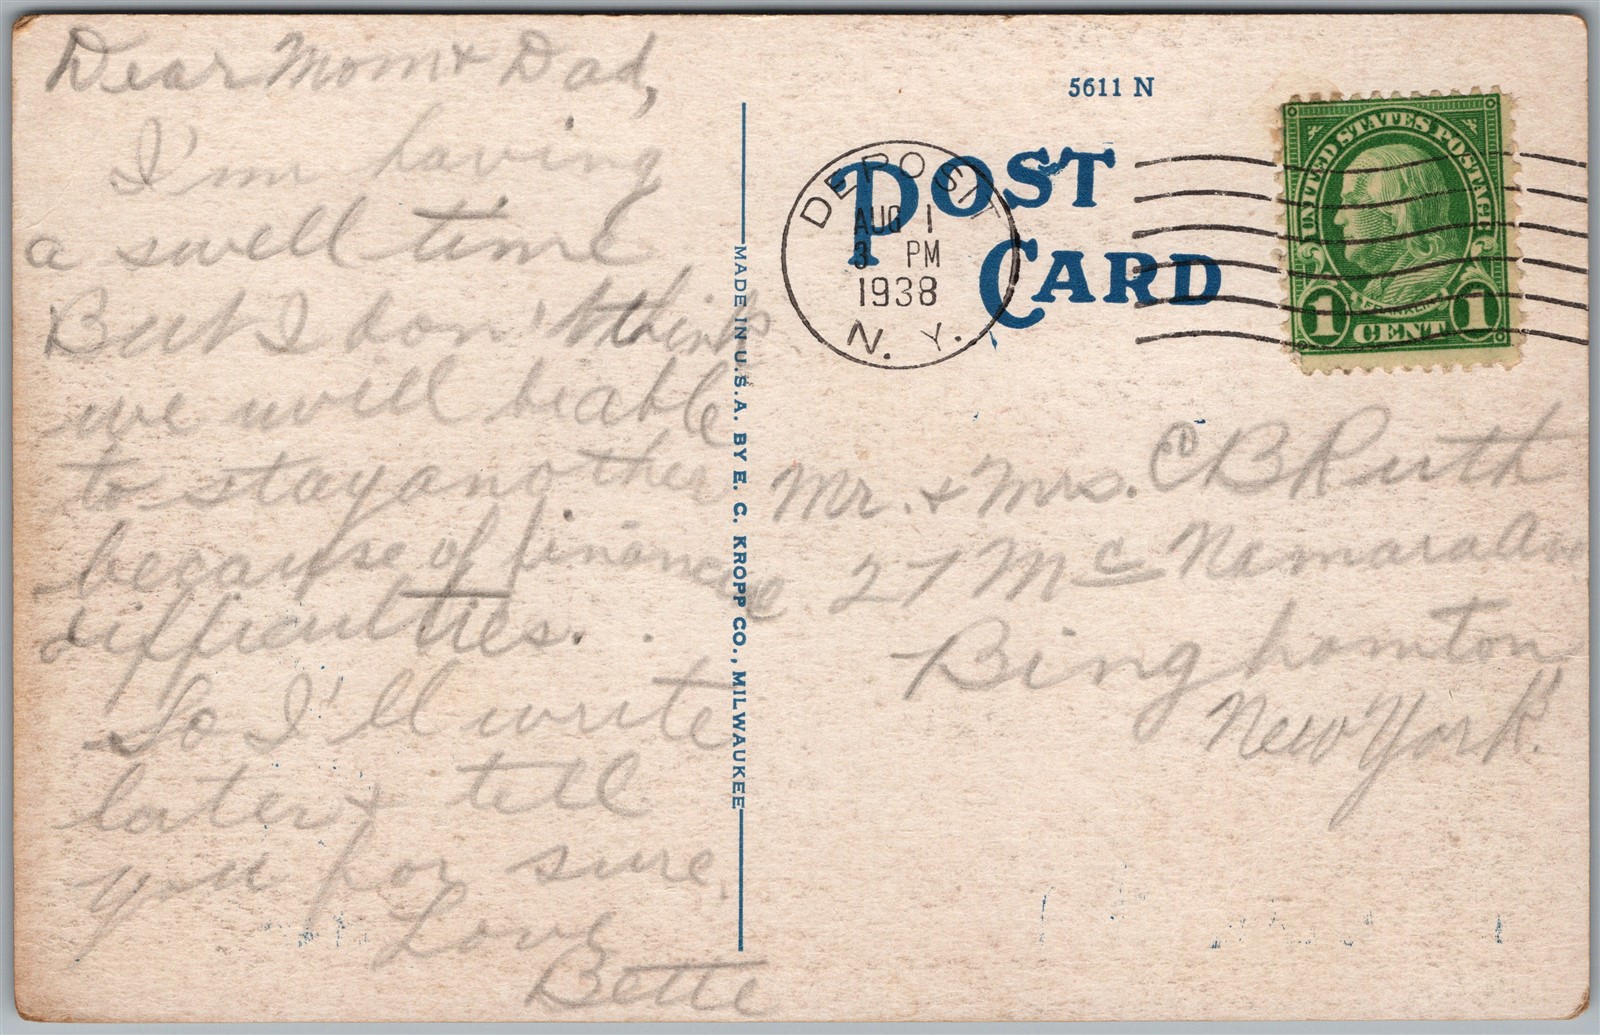 Dear Mom & Dad,
I'm having
a swell time
But I don't think
we will be able
to stay another
because of finance
difficulties.
So I'll write
later & tell
you for sure.
Love
Bette
MADE IN U.S.A. BY E. C. KROPP CO., MILWAUKEE
5611 N
POST
CARD
DEPOSIT
AUG 1
3 PM
1938
N. Y.
UNITED STATES POSTAGE
1 CENT 1
FRANKLIN
Mr. & Mrs. B Ruth
27 McNamara Ave
Binghamton
New York.